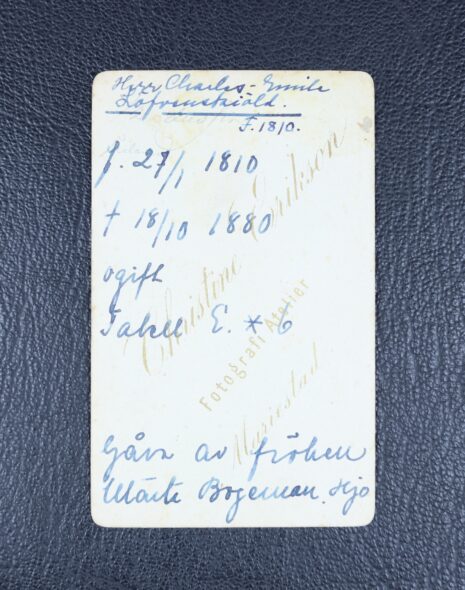 Herr Charles-Emile
Löfvenskiöld.
F. 1810.
f. 27/1 1810
† 18/10 1880
ogift
Tabell E. * 6
Christine Erikson
Fotografi Atelier
Mariestad
Gåva av fröken
Märta Bogeman, Hjo